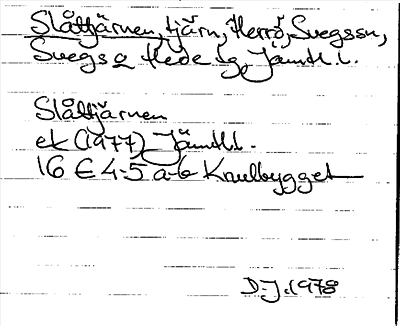 Slåttjärnen, tjärn, Herrö, Svegssn,
Svegs o Hede tg Jämtl. l.
Slåttjärnen
ek (1977) Jämtl.l.
16 E 4-5 a-b Knulbygget
D.J. 1978